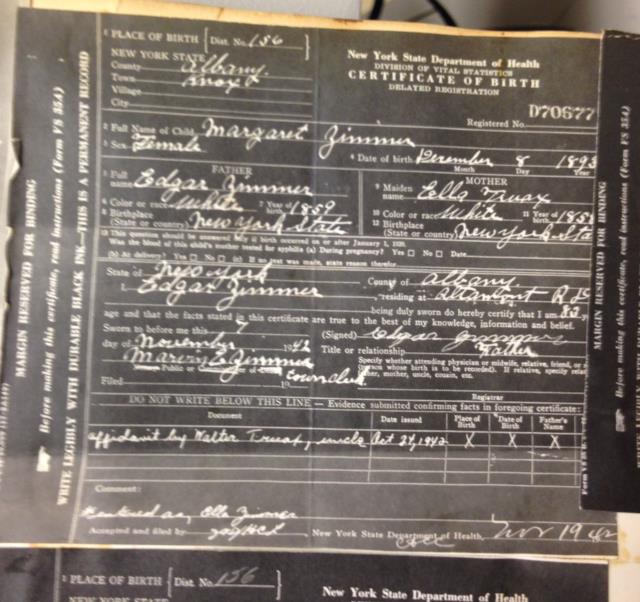 1 PLACE OF BIRTH Dist. No. 156
NEW YORK STATE
County Albany
Town Knox
Village
City
New York State Department of Health
DIVISION OF VITAL STATISTICS
CERTIFICATE OF BIRTH
DELAYED REGISTRATION
D70677
Registered No.
2 Full Name of Child Margaret Zimmer
3 Sex Female
4 Date of birth December 8 1893
Month Day Year
FATHER
5 Full name Edgar Zimmer
6 Color or race White 7 Year of birth 1859
8 Birthplace (State or country) New York State
MOTHER
9 Maiden name Ella Truax
10 Color or race White 11 Year of birth 185
12 Birthplace (State or country) New York Sta
13 This question should be answered only if birth occurred on or after January 1, 1939.
Was the blood of this child's mother tested for syphilis (a) During pregnancy? Yes No Date
(b) At delivery? Yes No (c) If no test was made, state reason therefor
State of New York County of Albany
I, Edgar Zimmer, residing at Altamont R D
being duly sworn do hereby certify that I am 83 y
age and that the facts stated in this certificate are true to the best of my knowledge, information and belief.
Sworn to before me this 7 (Signed) Edgar Zimmer
day of November 1942 Title or relationship Father
Marvin E. Zimmer
Specify whether attending physician or midwife, relative, friend, or
(person whose birth is to be recorded). If relative, specify rela
ther, mother, uncle, cousin, etc.
Public or
Town Clerk
Filed 19
Registrar
DO NOT WRITE BELOW THIS LINE — Evidence submitted confirming facts in foregoing certificate:
Document Date issued Place of Birth Date of Birth Father's Name
affidavit by Walter Truax, uncle Oct 24, 1942 X X X
Comment:
as, Ella Zimmer
Accepted and filed by HCL, New York State Department of Health, Nov 19 42
MARGIN RESERVED FOR BINDING
Before making this certificate, read instructions (Form VS 35A)
WRITE LEGIBLY WITH DURABLE BLACK INK—THIS IS A PERMANENT RECORD
MARGIN RESERVED FOR BINDING
Before making this certificate, read instructions (Form VS 35A)
WRITE LEGIBLY WITH DURABLE BLA
1 PLACE OF BIRTH Dist. No. 156
NEW YORK STATE
New York State Department of Health